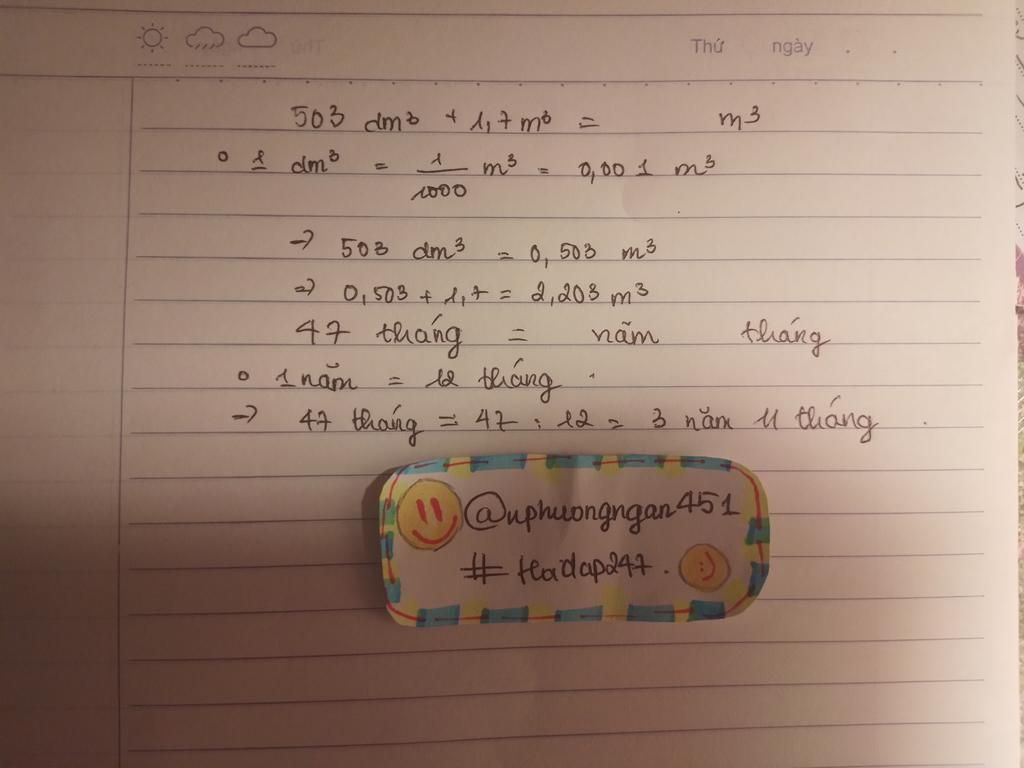 Thứ ngày . .
503 dm³ + 1,7 m³ = m³
1 dm³ = 1/1000 m³ = 0,001 m³
→ 503 dm³ = 0,503 m³
⇒ 0,503 + 1,7 = 2,203 m³
47 tháng = năm tháng
1 năm = 12 tháng .
→ 47 tháng = 47 : 12 = 3 năm 11 tháng .
@uphuongngan451
# hadap247 . :)